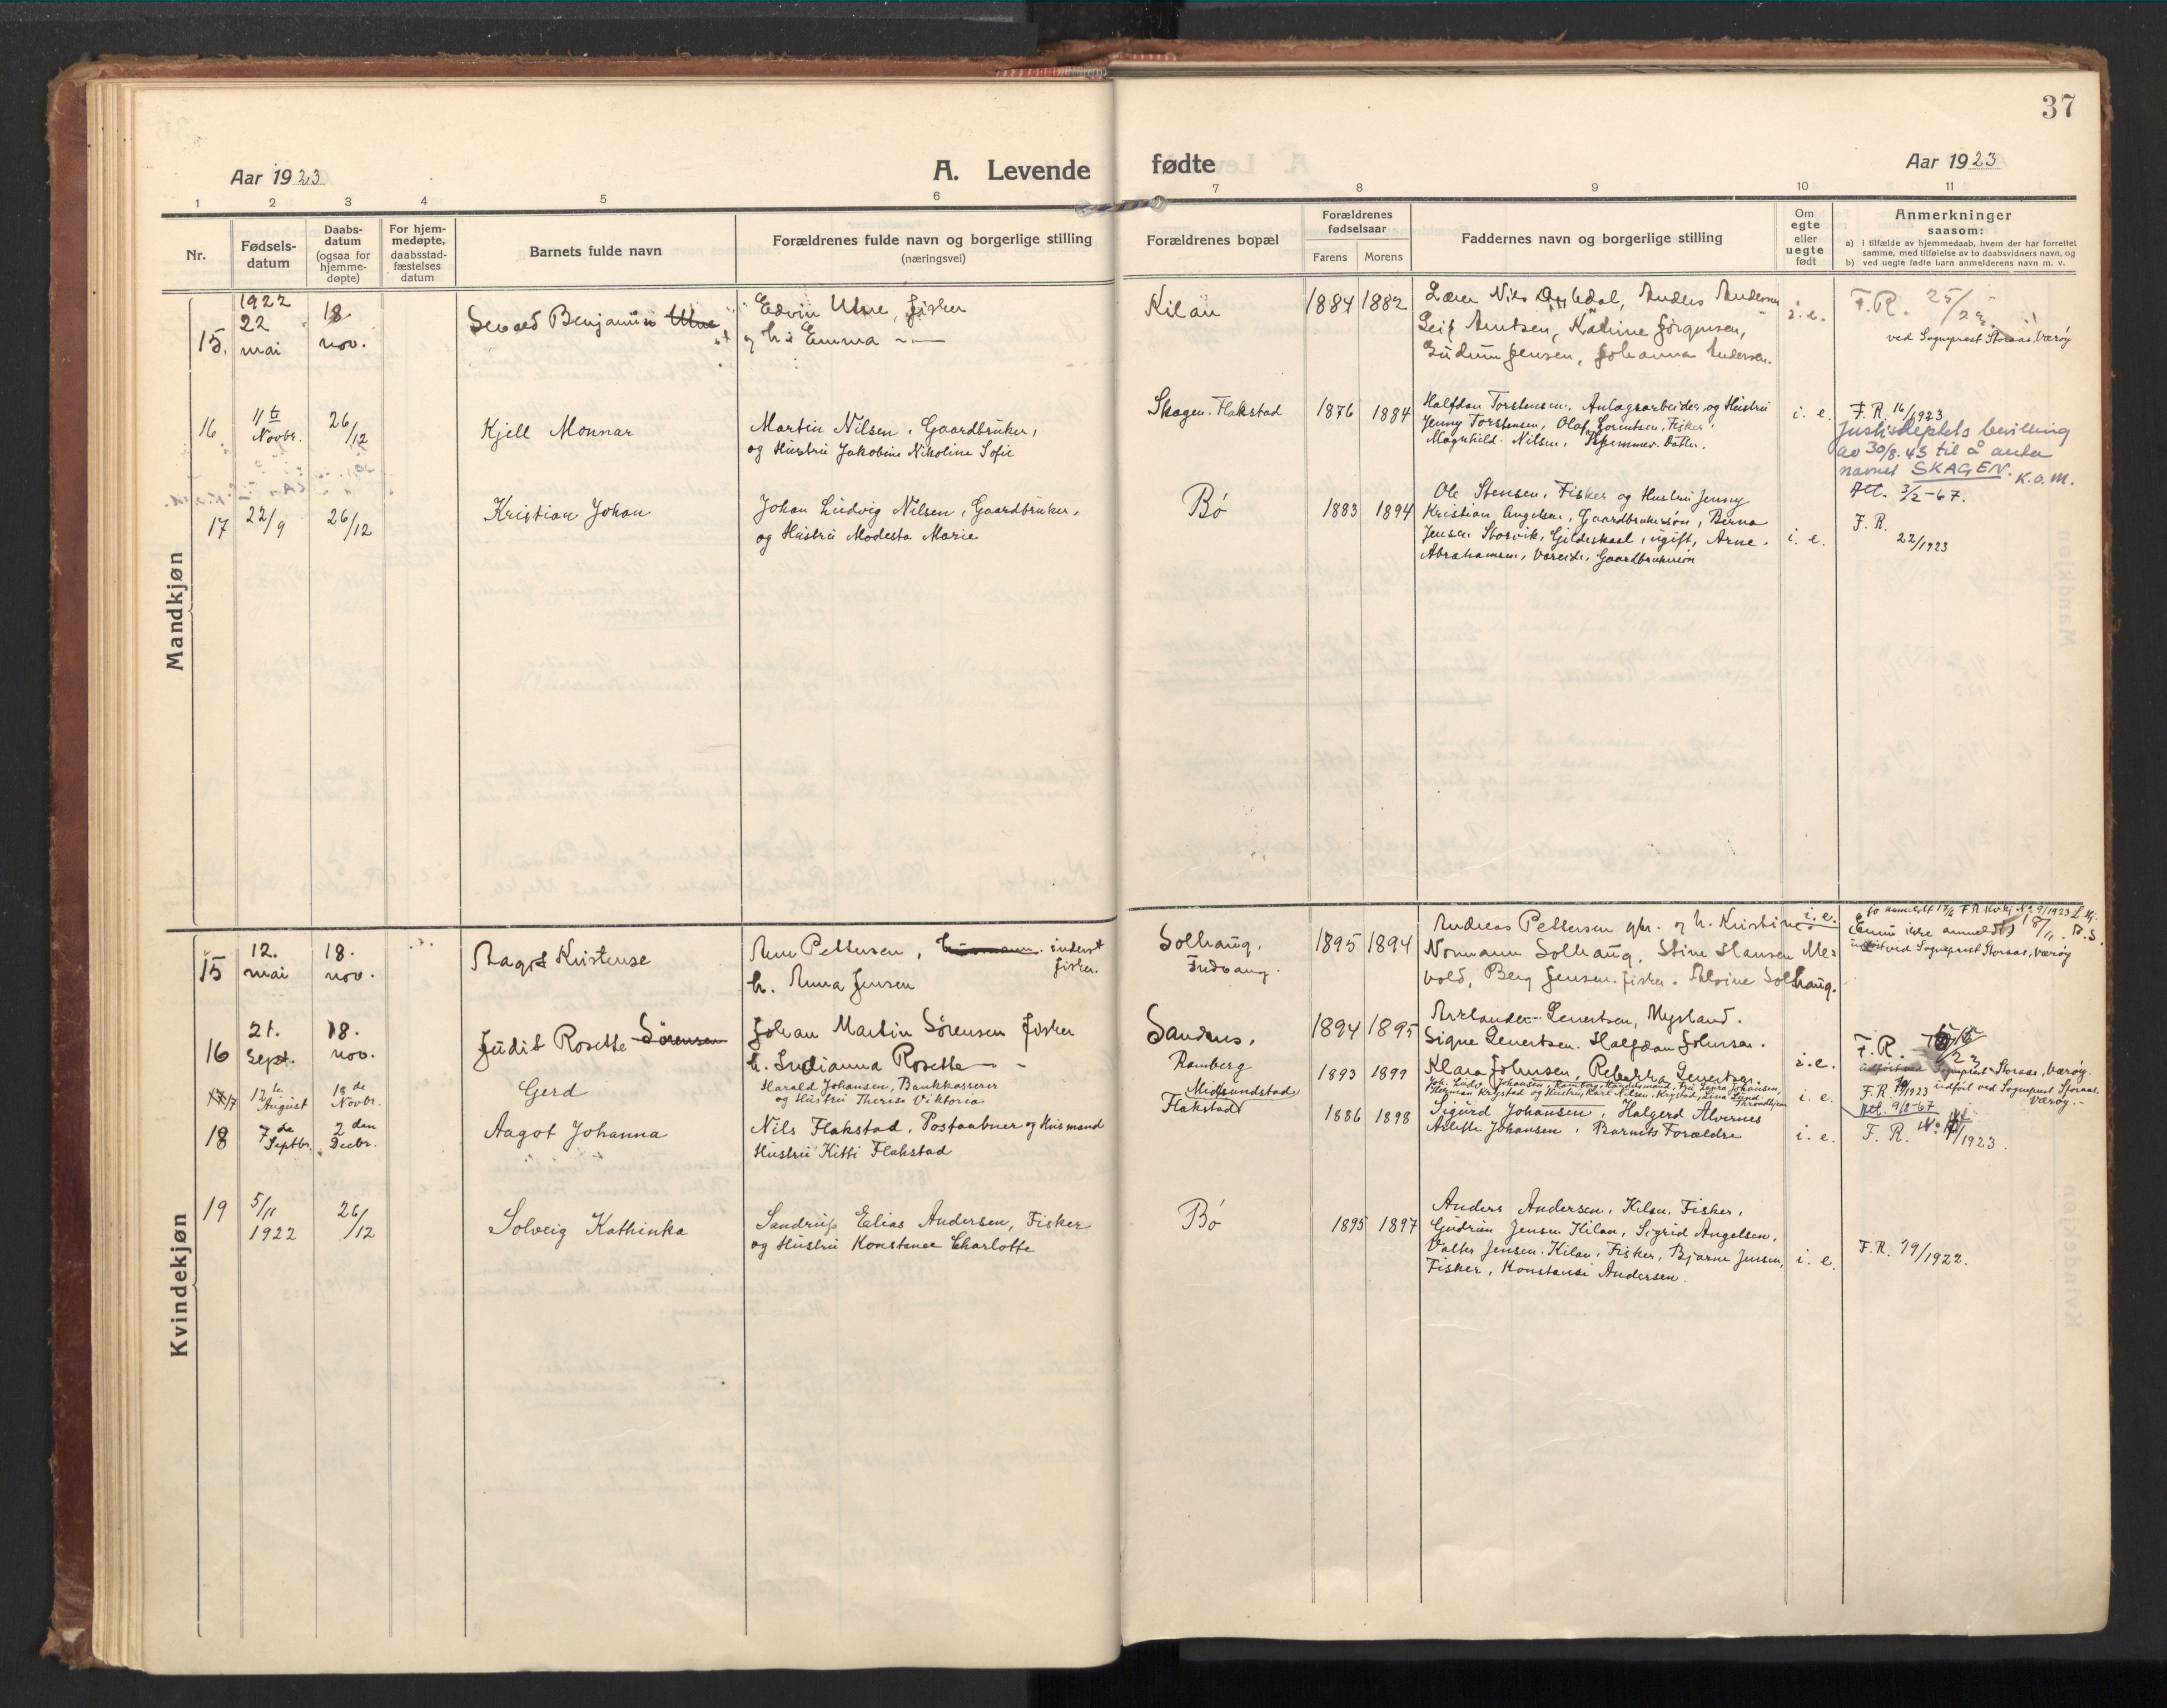 37
Aar 1923
A. Levende fødte
Aar 1923
1 2 3 4 5 6 7 8 9 10 11
Nr.
Fødsels-
datum
Daabs-
datum
(ogsaa for
hjemme-
døpte)
For hjem-
medøpte,
daabsstad-
fæstelses
datum
Barnets fulde navn
Forældrenes fulde navn og borgerlige stilling
(næringsvei)
Forældrenes bopæl
Forældrenes
fødselsaar
Farens Morens
Faddernes navn og borgerlige stilling
Om
egte
eller
uegte
født
Anmerkninger
saasom:
a) i tilfælde av hjemmedaab, hvem der har forrettet
samme, med tilføielse av to daabsvidners navn, og
b) ved uegte fødte barn anmelderens navn m. v.
Mandkjøn
15.
1922
22
mai
18
nov.
Benjamin Utne
Edvin Utne, fisker
og h. Emma
Kilan
1884 1882
Lærer Nils Anders Andersen
Leif Arntsen, Katrine Jørgensen,
Gudrun Jensen, Johanna Andersen.
i. e.
F. R. 25/
ved Sogneprest Storaas, Værøy
16
11te
Novbr.
26/12
Kjell Monnar
Martin Nilsen, Gaardbruker,
og Hustru Jakobine Nikoline Sofie
Skagen. Flakstad
1876 1884
Halfdan Torstensen, Anlægsarbeider, og Hustru
Jenny Torstensen, Olaf Lorentsen, Fisker,
Magnhild Nilsen, Hjemmev. Datter.
i. e.
F. R. 16/1923
Justisdeptets bevilling
av 30/8. 45 til å anta
navnet SKAGEN. K.O.M.
Att. 3/2-67.
17
22/9
26/12
Kristian Johan
Johan Ludvig Nilsen, Gaardbruker,
og Hustru Modesta Marie
Bø
1883 1894
Ole Stensen, Fisker og Hustru Jenny
Kristian Angelsen, Gaardbrukersøn, Berna
Jensen Storvik, Gildeskaal, ugift, Arne
Abrahamsen, Vareide, Gaardbrukersøn
i. e.
F. R.
22/1923
Kvindekjøn
15
12.
mai
18.
nov.
Ragna Kristense
Arne Pettersen, inderst
fisker.
h. Anna Jensen
Solhaug,
Fredvang.
1895 1894
Andreas Pettersen gbr. og h. Kristine
Normann Solhaug, Stine Hansen Mel-
vold, Berg Jensen. fisker. Alvine Solhaug.
i. e.
ved Sogneprest Storaas, Værøy
16
21.
Sept.
18.
nov.
Judit Rosette Sørensen
Johan Martin Sørensen fisker
h. Indianna Rosette
Sandnes,
Ramberg
1894 1895
Signe Lenertsen. Halfdan Johnsen.
Klara Johnsen, Rebekka Lenertsen.
i. e.
F. R.
udført ved Sogneprest Storaas, Værøy.
17
12te
August
18de
Novbr.
Gerd
Harald Johansen, Bankkasserer
og Hustru Therese Viktoria
Midsundstad
Flakstad
1893 1899
i. e.
F. R. 1923 udført ved Sogneprest Storaas.
Værøy.
Att. 9/8-67
18
7de
Septbr.
2den
Decbr.
Aagot Johanna
Nils Flakstad, Postaabner og Husmand
Hustru Kitti Flakstad
1886 1898
Sigurd Johansen, Halgerd Alvernes
Arlette Johansen, Barnets Forældre
i. e.
F. R. /1923.
19
5/11
1922
26/12
Solveig Kathinka
Sandrup Elias Andersen, Fisker
og Hustru Konstance Charlotte
Bø
1895 1897
Anders Andersen, Kilan, Fisker,
Gudrun Jensen Kilan, Sigrid Angelsen,
Valter Jensen. Kilan, Fisker, Bjarne Jensen,
Fisker, Konstanse Andersen.
i. e.
F. R. 19/1922.